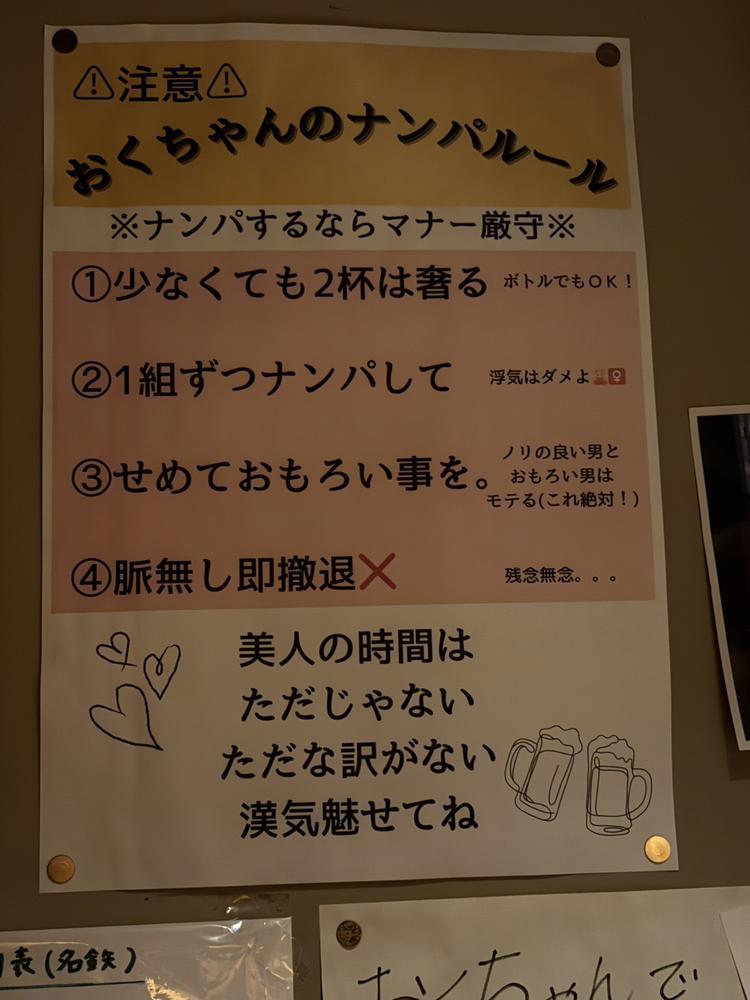 ⚠注意⚠
おくちゃんのナンパルール
※ナンパするならマナー厳守※
①少なくても2杯は奢る ボトルでもOK!
②1組ずつナンパして 浮気はダメよ
③せめておもろい事を。 ノリの良い男と
おもろい男は
モテる(これ絶対!)
④脈無し即撤退❌ 残念無念。。。
美人の時間は
ただじゃない
ただな訳がない
漢気魅せてね
表(名鉄)
ちゃんで